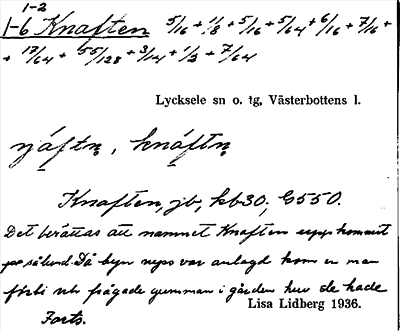 1-2
1-6 Knaften 5/16 + 1/8 + 5/16 + 5/64 + 6/16 + 7/16 +
+ 17/64 + 55/128 + 3/14 + 1/2 + 7/64
Lycksele sn o. tg, Västerbottens l.
Knaften, jb, kb 30, G550.
Det berättas att namnet Knaften uppkommit
på såsund. Då byn nyss var anlagd kom en man
förbi och frågade gumman i gården hur de hade
Lisa Lidberg 1936.
Forts.